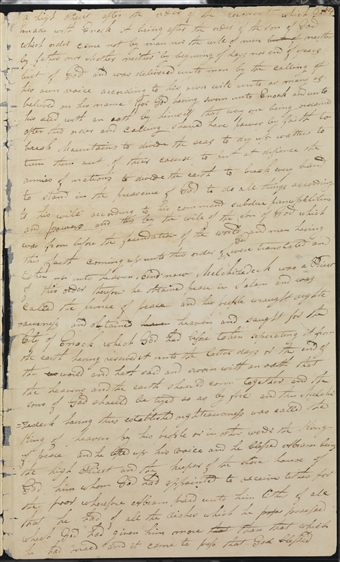 a high Priest after the order of the covenant which God
made with Enock it being after the order of the Son of God
which order came not by man nor the will of man
by father nor mother neither by begining of days nor end of years
but of God and was delivered unto man by the calling of
his own voice according to his own will unto as many as
believed on his name for God having sworn unto Enock and unto
his seed with an oath by himself that every one being
after this order and calling should have power by faith to
break Mountains to divide the seas to dry up watters to
turn them out of their course to put at defience the
armies of nations to divide the earth to break every band
to stand in the presence of God to do all things according
to his will according to his command subdue
and powers and this by the will of the Son of God which
was from before the foundation of the world and men having
this faith coming up unto this order of God were translated and
up into heaven and now Melchizedeck was a Priest
of this order therefore he obtained peace in Salem and was
called the Prince of peace and his people wrought
and obtained heaven and saught for the
City of Enock which God had before taken seperating it from
the earth having reserved it unto the latter days or the end of
the world and hath said and sworn with an oath that
the heavens and the earth should come together and the
sons of God should be tryed so as by fire and this
having thus established righteousness was called the
King of heaven by his people or in other words the King
of peace and he lifted up his voice and he blessed Abram being
the high Priest and the keeper of the store house of
God him whom God had appointed to receive tithes for
the poor wherefore Abram paid unto him tithes of all
that he had of all the riches which he possessed
which God had given him more than that which
he had need and it came to pass that God blessed